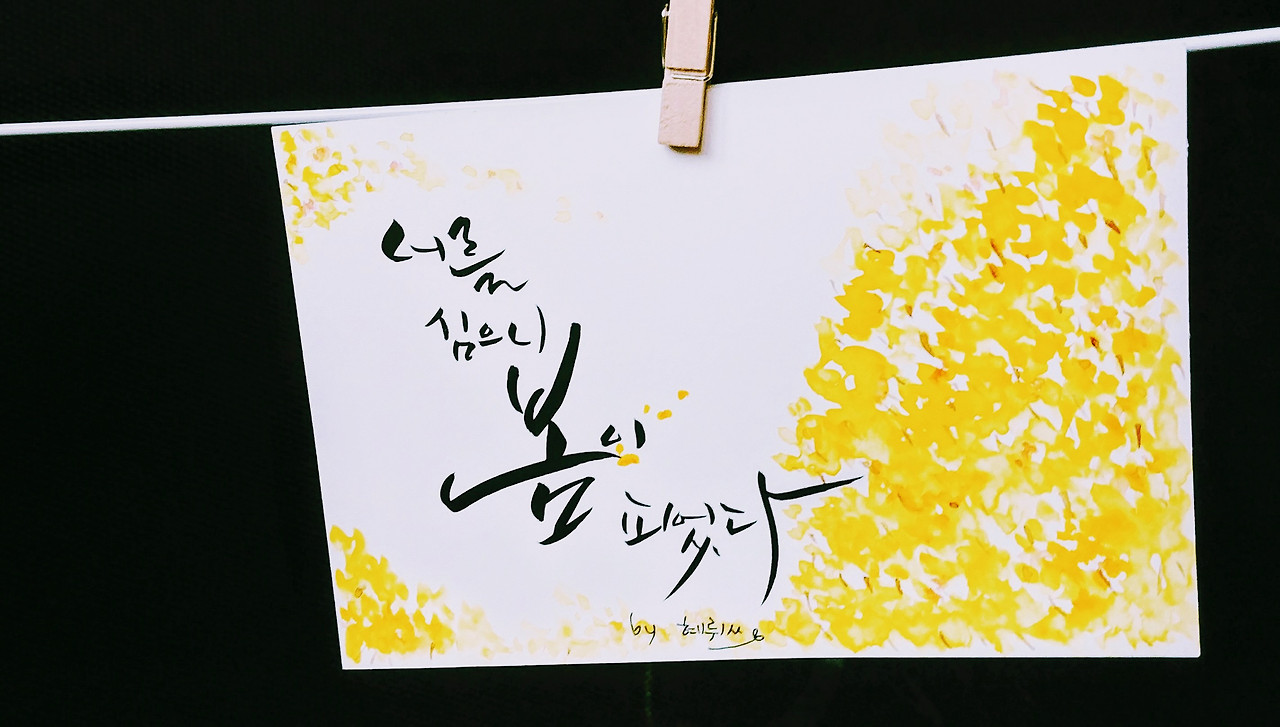 너를
심으니
봄이
피었다
by 혜뤼씨